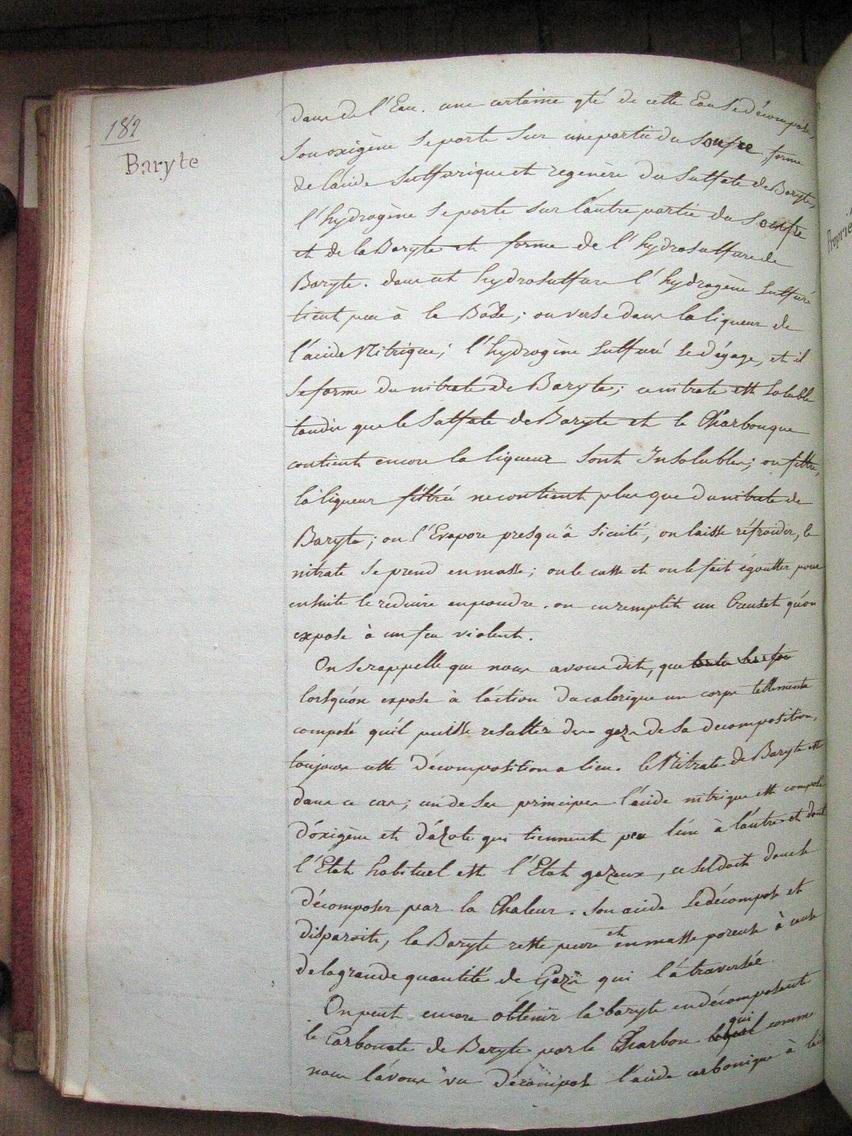 182
Baryte
dans de l'Eau. une certaine qté de cette Eau se décompose,
Son oxigène se porte sur une partie du Soufre, forme
de l'acide Sulfurique et regenère du Sulfate de Baryte,
l'hydrogène se porte sur l'autre partie du Soufre
et de la Baryte et forme de l'hydrosulfure de
Baryte. dans cet hydrosulfure l'hydrogène Sulfuré
tient peu à la Base; on verse dans la liqueur de
l'acide Nitrique; l'hydrogène Sulfuré se dégage, et il
se forme du nitrate de Baryte; ce nitrate est soluble
tandis que le Sulfate de Baryte et le Charbon que
contient encore la liqueur sont Insolubles; on filtre,
la liqueur filtrée ne contient plus que du nitrate de
Baryte; on l'Evapore presqu'à sicité, on laisse réfroidir, le
nitrate se prend en masse; on le casse et on le fait égoutter pour
ensuite le reduire en poudre. on en remplit un Creuset qu'on
expose à un feu violent.
On se rappelle que nous avons dit, que
lorsqu'on expose à l'action du calorique un corps tellement
composé qu'il puisse resulter du gaz de sa decomposition,
toujours cette décomposition a lieu. le Nitrate de Baryte est
dans ce cas; un de ses principes l'acide nitrique est composé
d'oxigène et d'azote qui tiennent peu l'un à l'autre et dont
l'Etat habituel est l'Etat gazeux, ce sel doit donc se
décomposer par la Chaleur. Son acide se décompose et
disparoit, la Baryte reste pure et en masse poreuse à cause
de la grande quantité de Gaz qui l'a traversée.
On peut encore obtenir la baryte en décomposant
le Carbonate de Baryte par le Charbon qui comme
nous l'avons vu décompose l'acide carbonique à